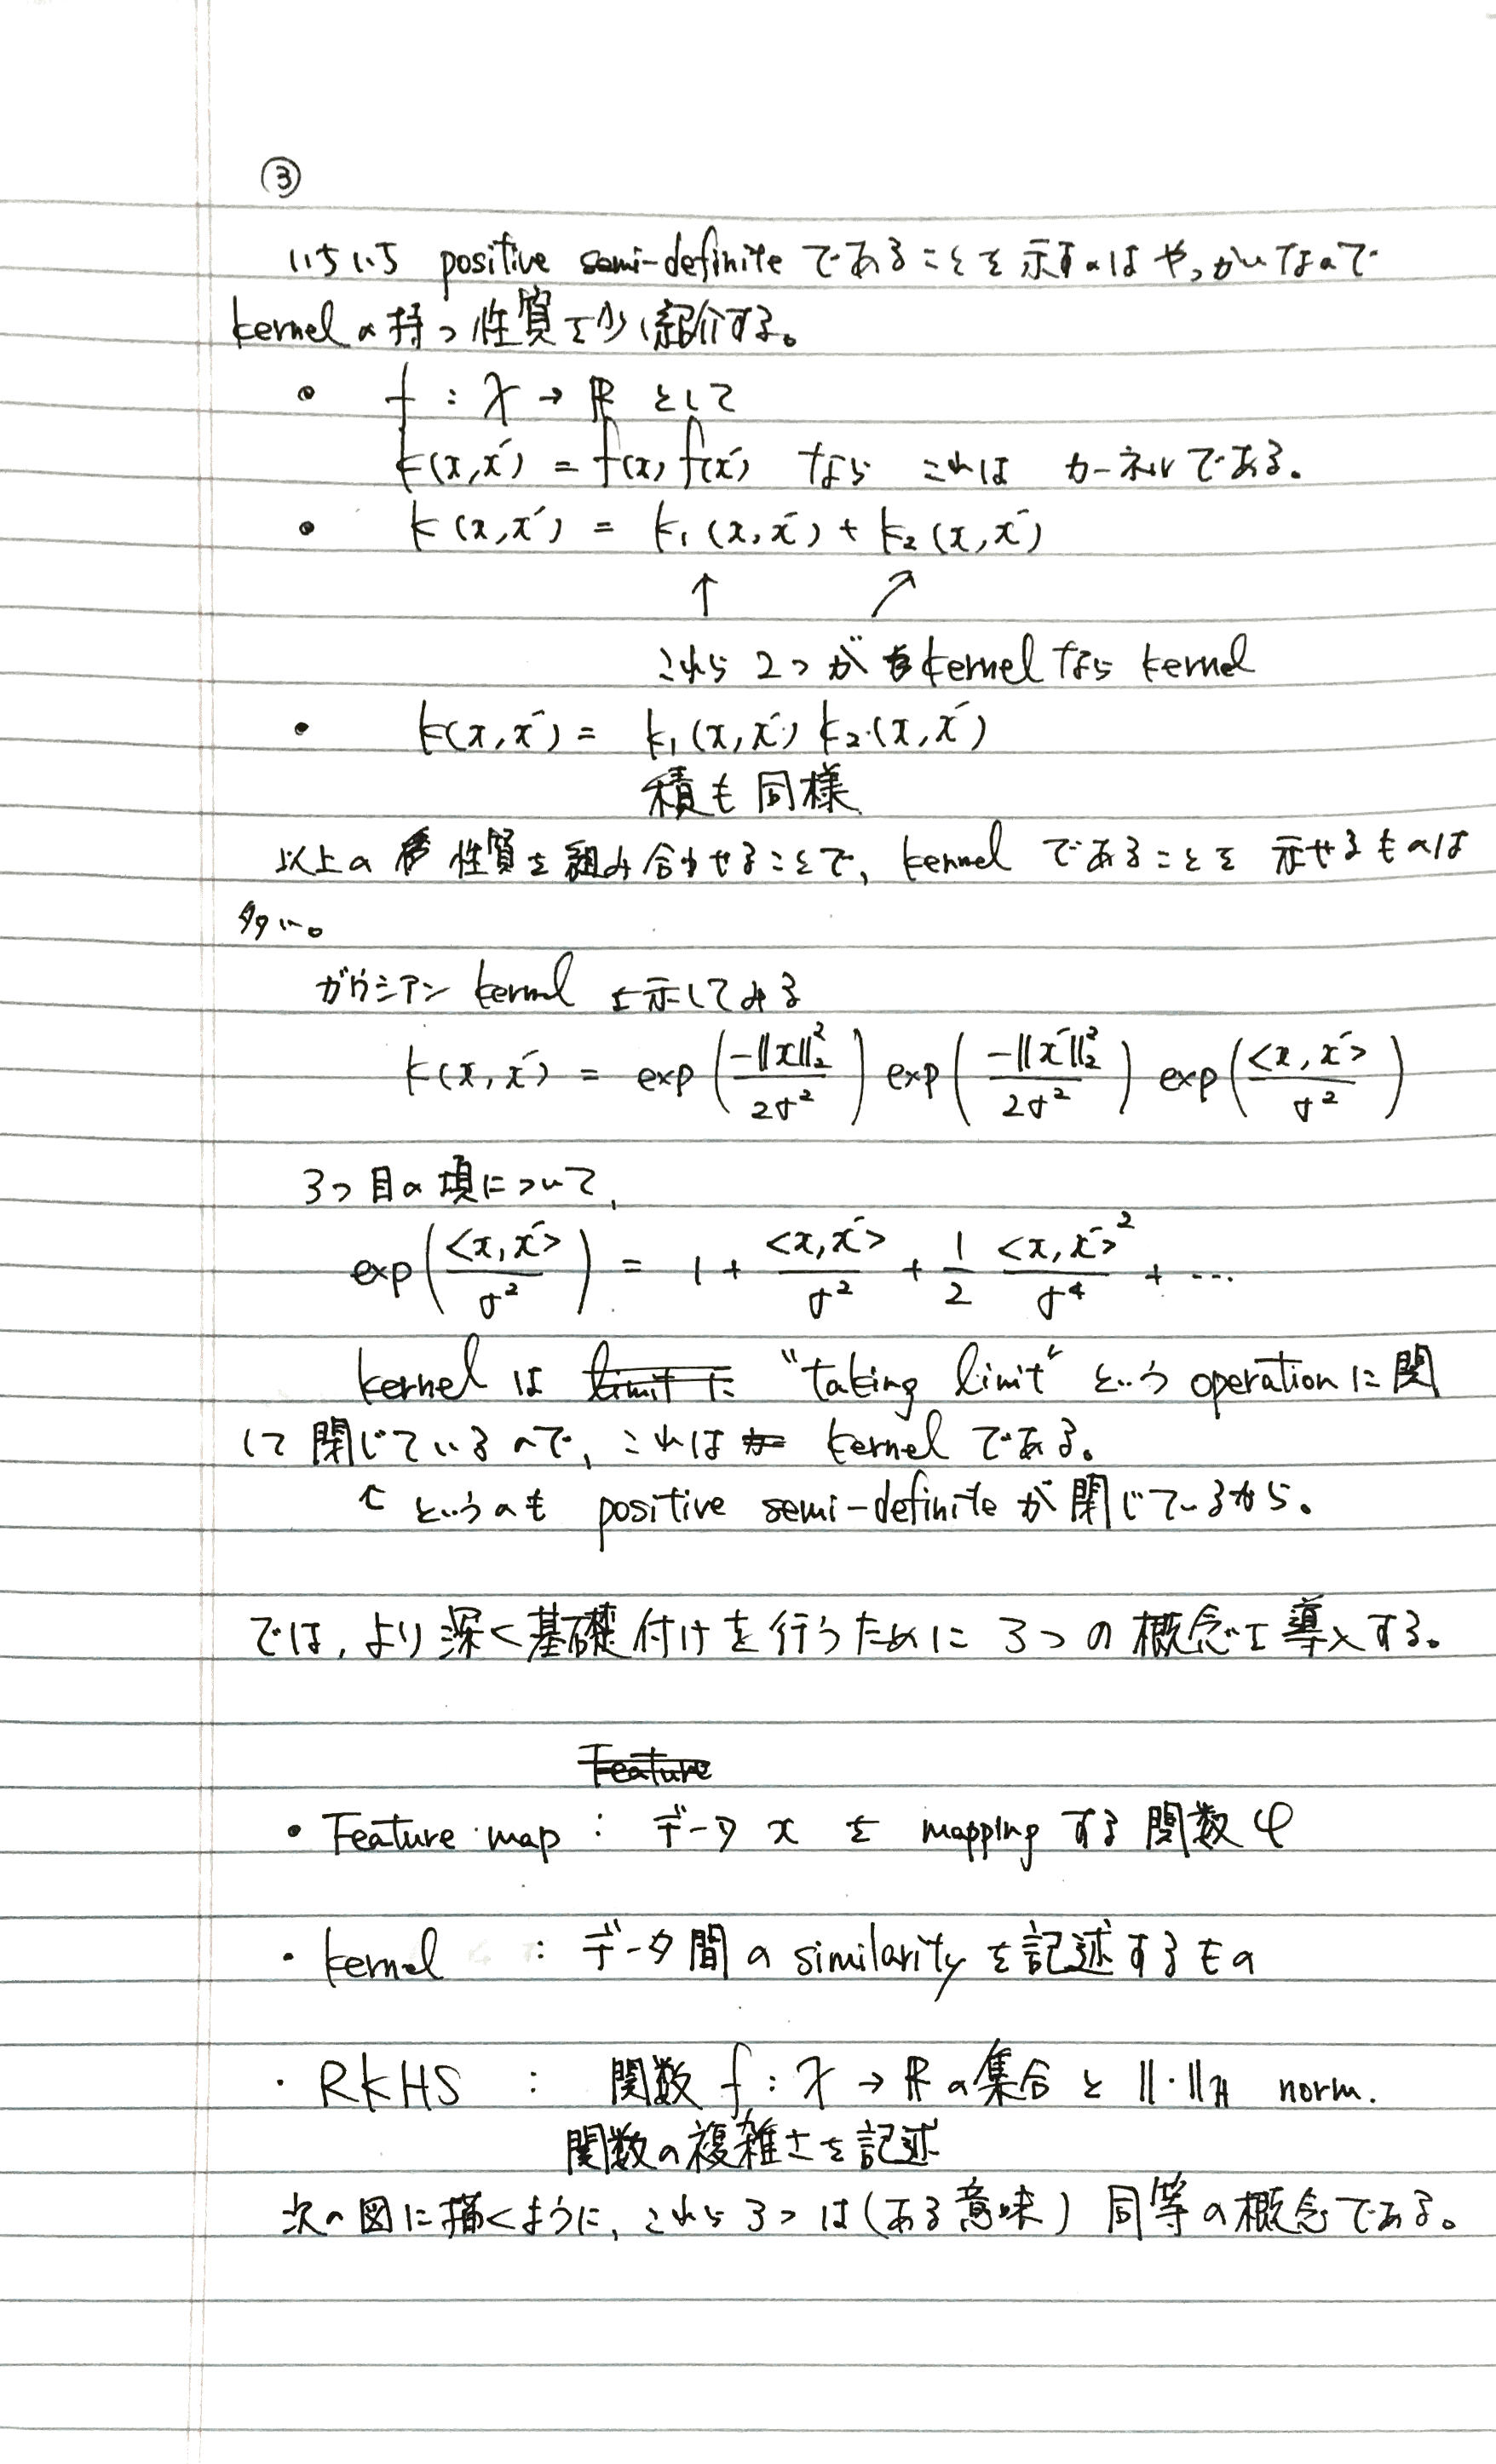 ③
いちいち positive semi-definite であることを示すのはやっかいなので
kernel の持つ性質を少し紹介する。
• f : X → ℝ として
k(x, x') = f(x) f(x') なら これは カーネルである。
• k(x, x') = k₁(x, x') + k₂(x, x')
↑ ↗
これら 2つが kernel なら kernel
• k(x, x') = k₁(x, x') k₂(x, x')
積も同様
以上の 性質を組み合わせることで, kernel であることを 示せるものは
多い。
ガウシアン kernel を示してみる
k(x, x') = exp(-‖x‖₂² / 2σ²) exp(-‖x'‖₂² / 2σ²) exp(<x, x'> / σ²)
3つ目の項について,
exp(<x, x'> / σ²) = 1 + <x, x'> / σ² + 1/2 <x, x'>² / σ⁴ + ...
kernel は limit に "taking limit" という operation に関
して 閉じているので, これは kernel である。
↑ というのも positive semi-definite が閉じているから。
では, より深く基礎付けを行うために 3つの概念を導入する。
Feature
• Feature map : データ x を mapping する関数 φ
• kernel : データ間の similarity を記述するもの
• RKHS : 関数 f : X → ℝ の集合と ‖·‖ℋ norm.
関数の複雑さを記述
次の図に描くように, これら3つは(ある意味) 同等の概念である。